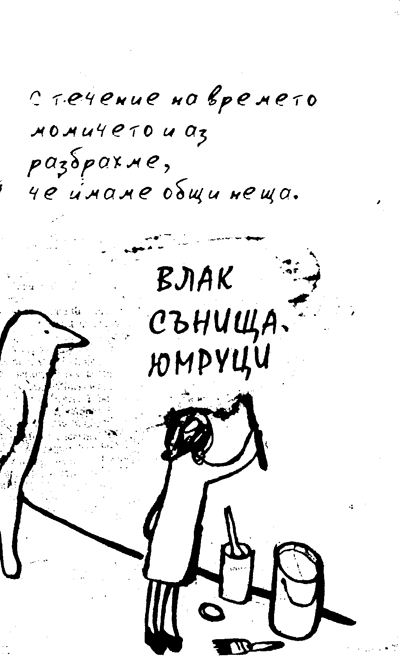 с течение на времето
момичето и аз
разбрахме,
че имаме общи неща.
ВЛАК
СЪНИЩА.
ЮМРУЦИ